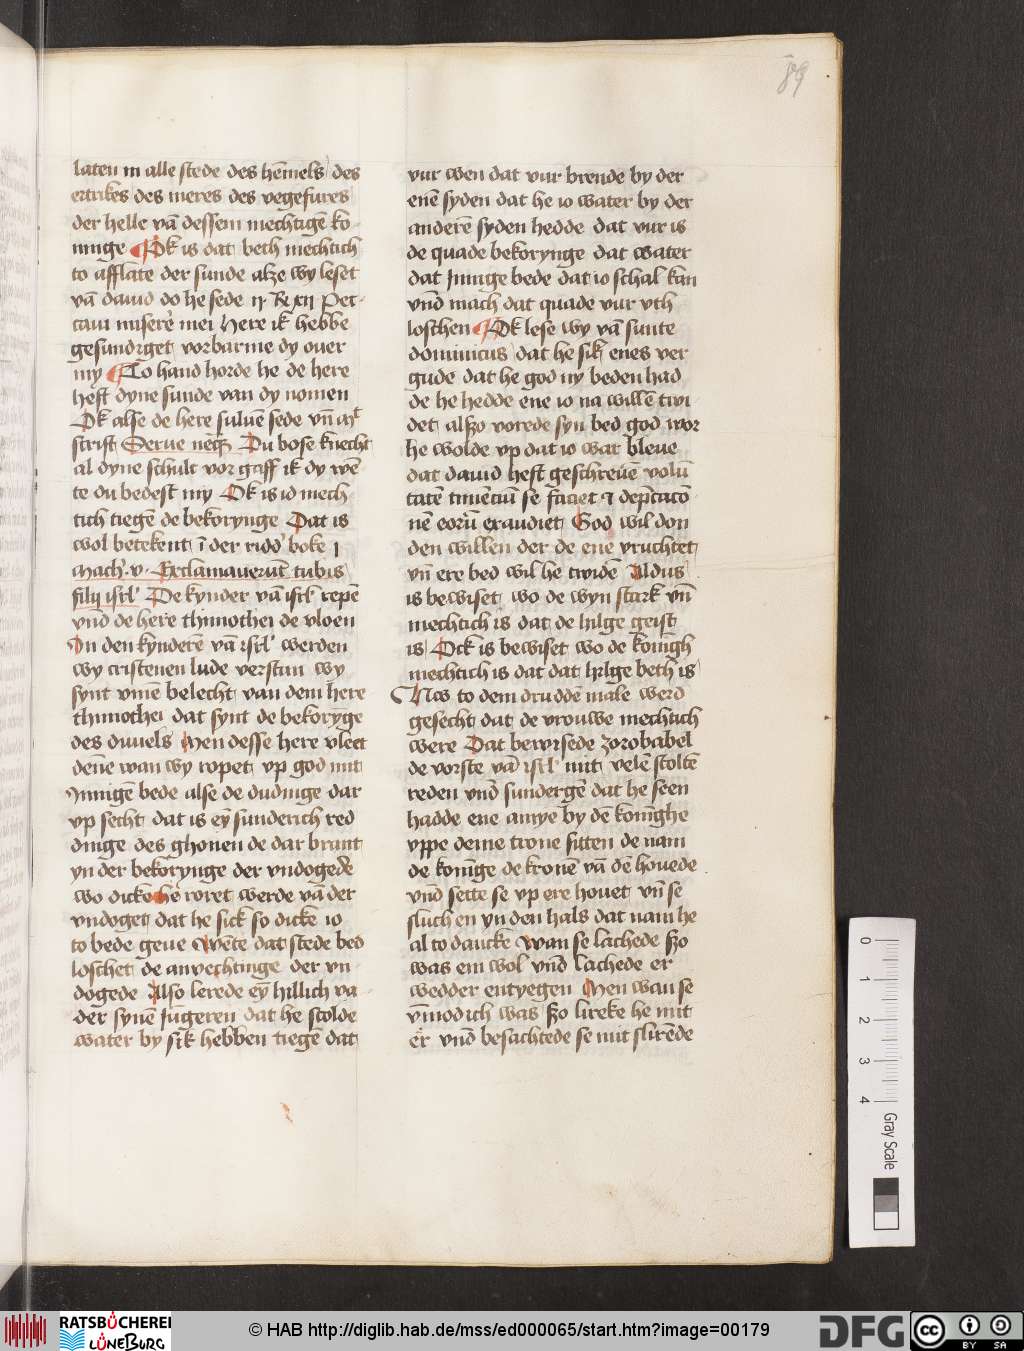 89
laten in alle stede des hēmels des
ertrikes des meres des vegefures
der helle vā dessem mechtigē ko-
ninge Ok is dat beth mechtich
to afflate der sunde alze wy leset
vā dauid do he sede ij R xij Pec-
caui miserē mei Here ik hebbe
gesundiget vorbarme dy ouer
my To hand horde he de here
heft dyne sunde van dy nomen
Ok alse de here suluē sede vn̄
scrift Serue neq̄ Du bose knecht
al dyne schult vor gaff ik dy wē
te du bedest my Ok is id mech
tich tiegē de bekorynge Dat is
wol betekent ī der ridd' boke j
Mach' v Exclamauerūt tubis
filij isrl' De kynder vā isrl' repē
vnd de here thimothei de vloen
In den kynderē vā isrl' werden
wy cristenen lude verstan wy
synt vme belecht van dem here
thimothei dat synt de bekorȳge
des duuels Men desse here vleet
denne wan wy ropet vp god mit
Innigē bede alse de dudinge dar
vp secht dat is eȳ sunderich red
dinge des ghonen de dar brant
yn der bekorynge der vndogede
wo dicke he roret werde vā der
vndoget dat he sick so dicke io
to bede geue Wete dat stede bed
loschet de anvechtinge der vn
dogede Also lerede eȳ hillich va-
der synē Iungeren dat he scolde
water by sik hebben tiegē dat
vur wen dat vur brende by der
enē syden dat he io water by der
anderē syden hedde dat vur is
de quade bekorynge dat water
dat Innige bede dat io schal kan
vnd mach dat quade vur vth
loschen Ok lese wy vā sunte
dominicus dat he sik enes ver
gude dat he god ny beden had
de he hedde ene io na willē twi
det alszo vorede syn bed god wor
he wolde vp dat io war bleue
dat dauid heft geschreuē volū
tatē timēciū se faciet ⁊ dep̄cacō
nē eorū exaudiet God wil don
den willen der de ene vruchtet
vn̄ ere bed wil he twidē Aldus
is bewiset wo de wyn stark vn̄
mechtich is dat de hilge geist
is Ock is bewiset wo de konīgh
mechtich is dat dat hilge beth is
Nw to dem druddē male werd
gesecht dat de vrouwe mechtich
were Dat bewisede zorobabel
de vorste vā isrl' mit velē stoltē
reden vnd sundergē dat he seen
hadde ene amye by dē konīghe
vppe deme trone sitten de nam
de konīge de kronē vā dē houede
vnd sette se vp ere houet vn̄ se
sluch en yn den hals dat nam he
al to dancke Wan se lachede szo
was em wol vnd lachede er
wedder entyegen Men wan se
vīmodich was szo lireke he mit
er vnd besachtede se mit slirēde
0 1 2 3 4
Gray Scale
RATSBÜCHEREI
LÜNEBURG
© HAB http://diglib.hab.de/mss/ed000065/start.htm?image=00179
DFG
cc BY SA